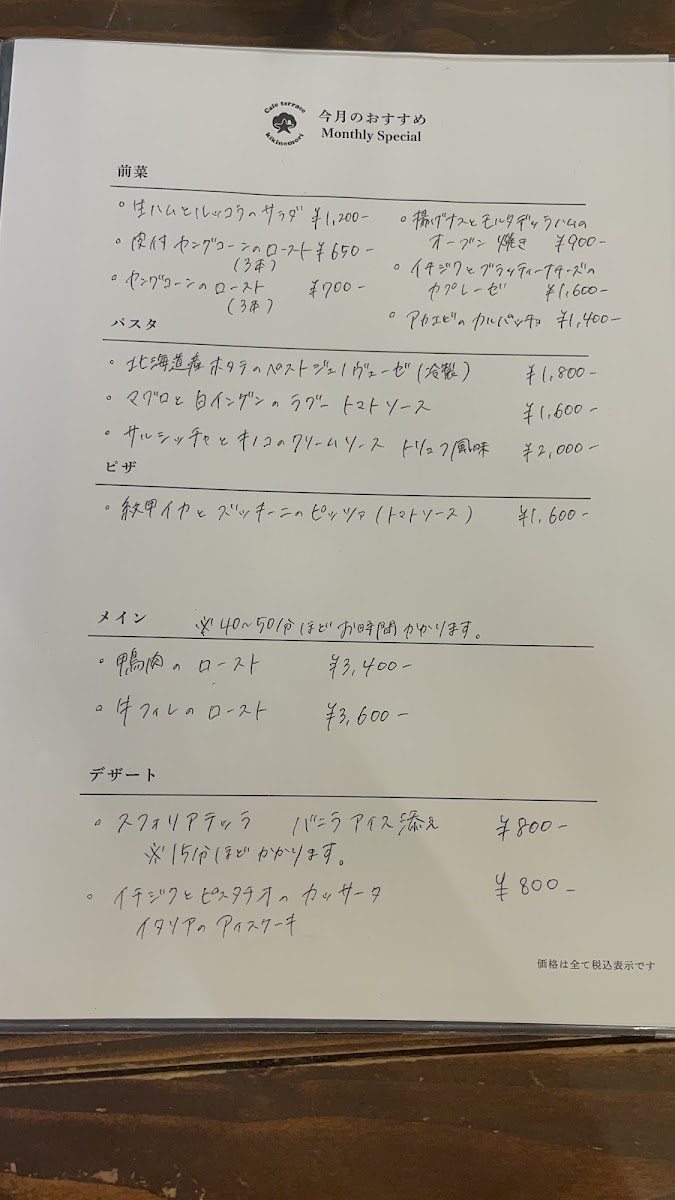 Cafe terrace
kikinomori
今月のおすすめ
Monthly Special
前菜
・生ハムとルッコラのサラダ ¥1,200-
・皮付ヤングコーンのロースト ¥650-
(3本)
・ヤングコーンのロースト ¥700-
(3本)
・揚げナスとモルタデッラハムの
オーブン焼き ¥900-
・イチジクとブラッティーナチーズの
カプレーゼ ¥1,600-
・アカエビのカルパッチョ ¥1,400-
パスタ
・北海道産ホタテのペストジェノヴェーゼ(冷製) ¥1,800-
・マグロと白インゲンのラグー トマトソース ¥1,600-
・サルシッチャとキノコのクリームソース トリュフ風味 ¥2,000-
ピザ
・紋甲イカとズッキーニのピッツァ(トマトソース) ¥1,600-
メイン ※40~50分ほどお時間かかります。
・鴨肉のロースト ¥3,400-
・牛フィレのロースト ¥3,600-
デザート
・スフォリアテッラ バニラアイス添え ¥800-
※15分ほどかかります。
・イチジクとピスタチオのカッサータ ¥800-
イタリアのアイスケーキ
価格は全て税込表示です